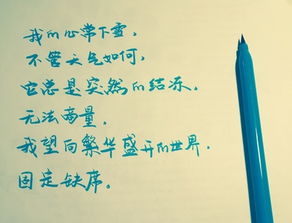 我的心常下雪，
不管天气如何，
它总是突然的结冻，
无法商量。
我望向繁华盛开的世界，
固定缺席。